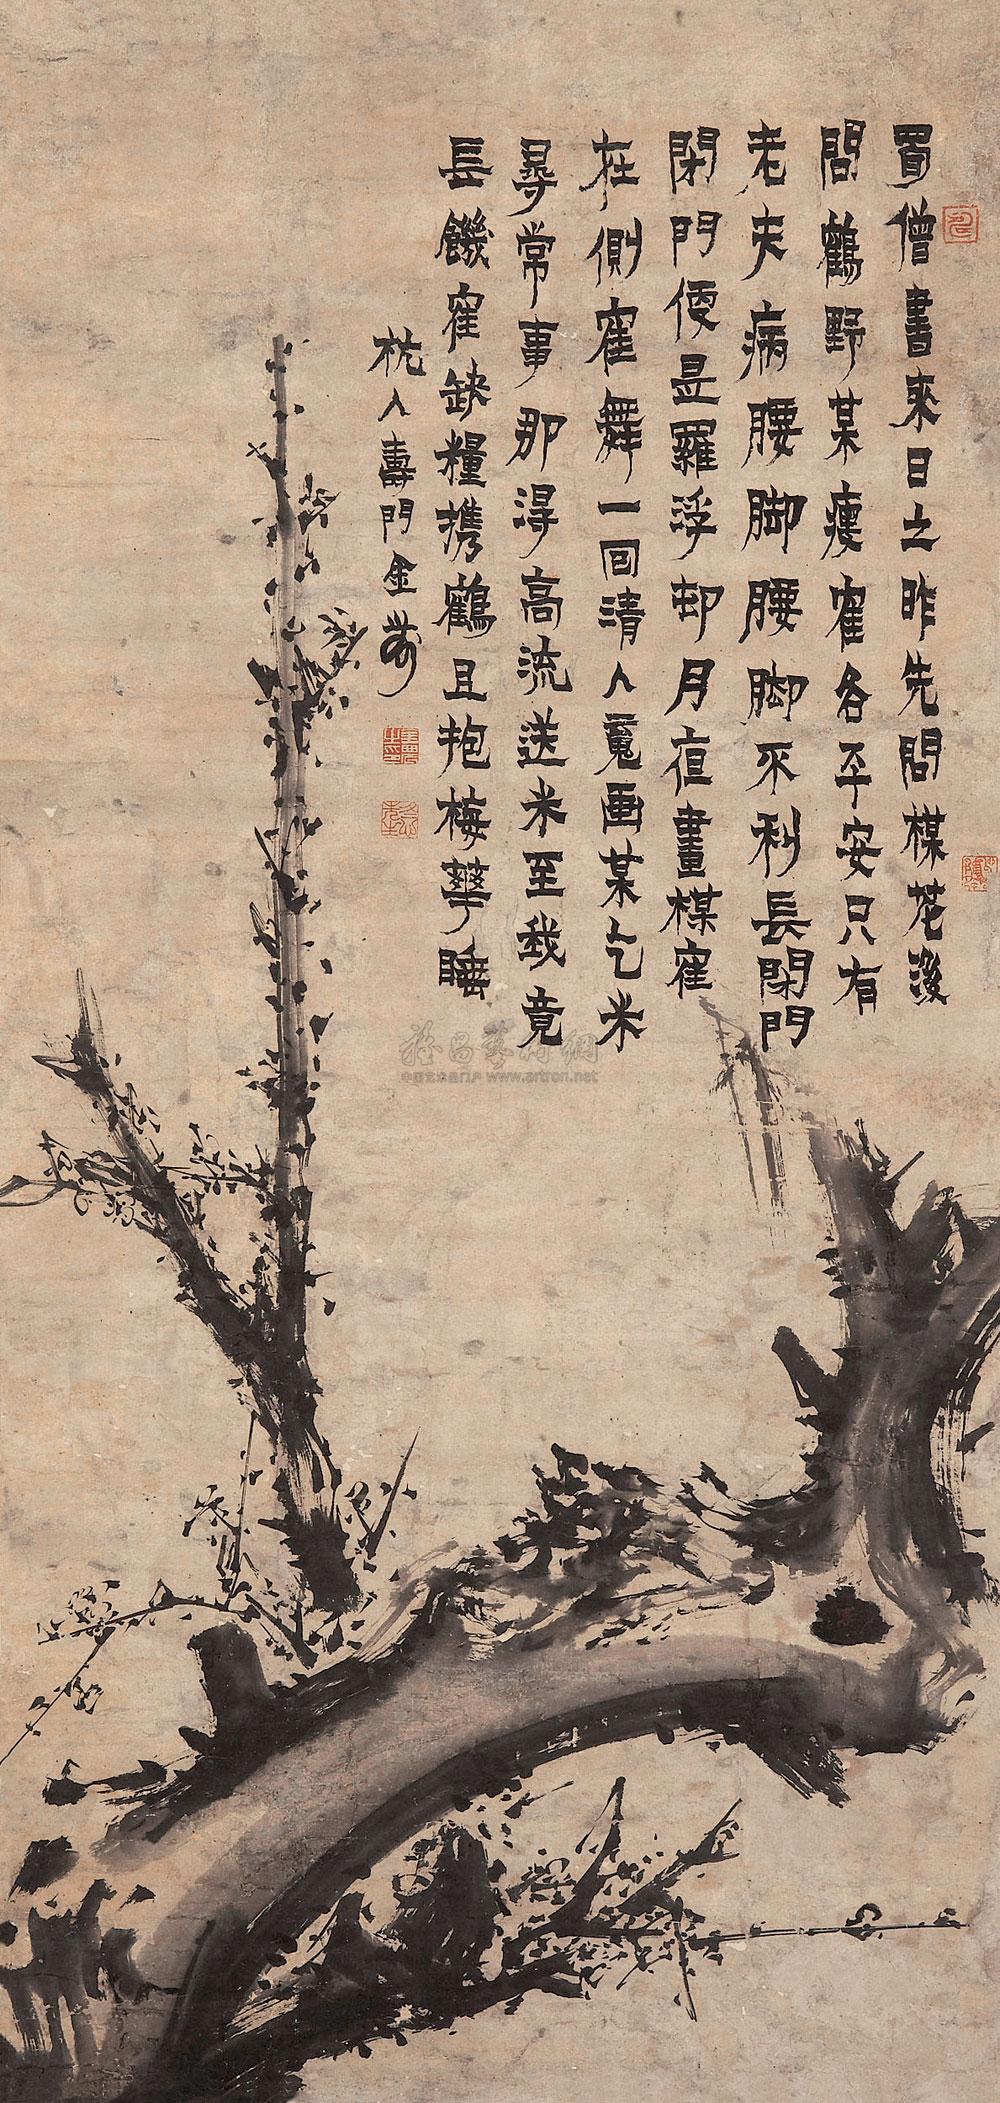 蜀僧書來日之昨先問楳花後
問鶴野某瘦隺各平安只有
老夫病腰脚腰脚不利長閉門
閉門便是羅浮邨月亱畫楳隺
在側隺舞一回清人䰟画某乞米
尋常事那得高流送米至我竟
長饑隺缺糧携鶴且抱梅華睡
杭人壽門金農
雅昌藝術網
www.artron.net